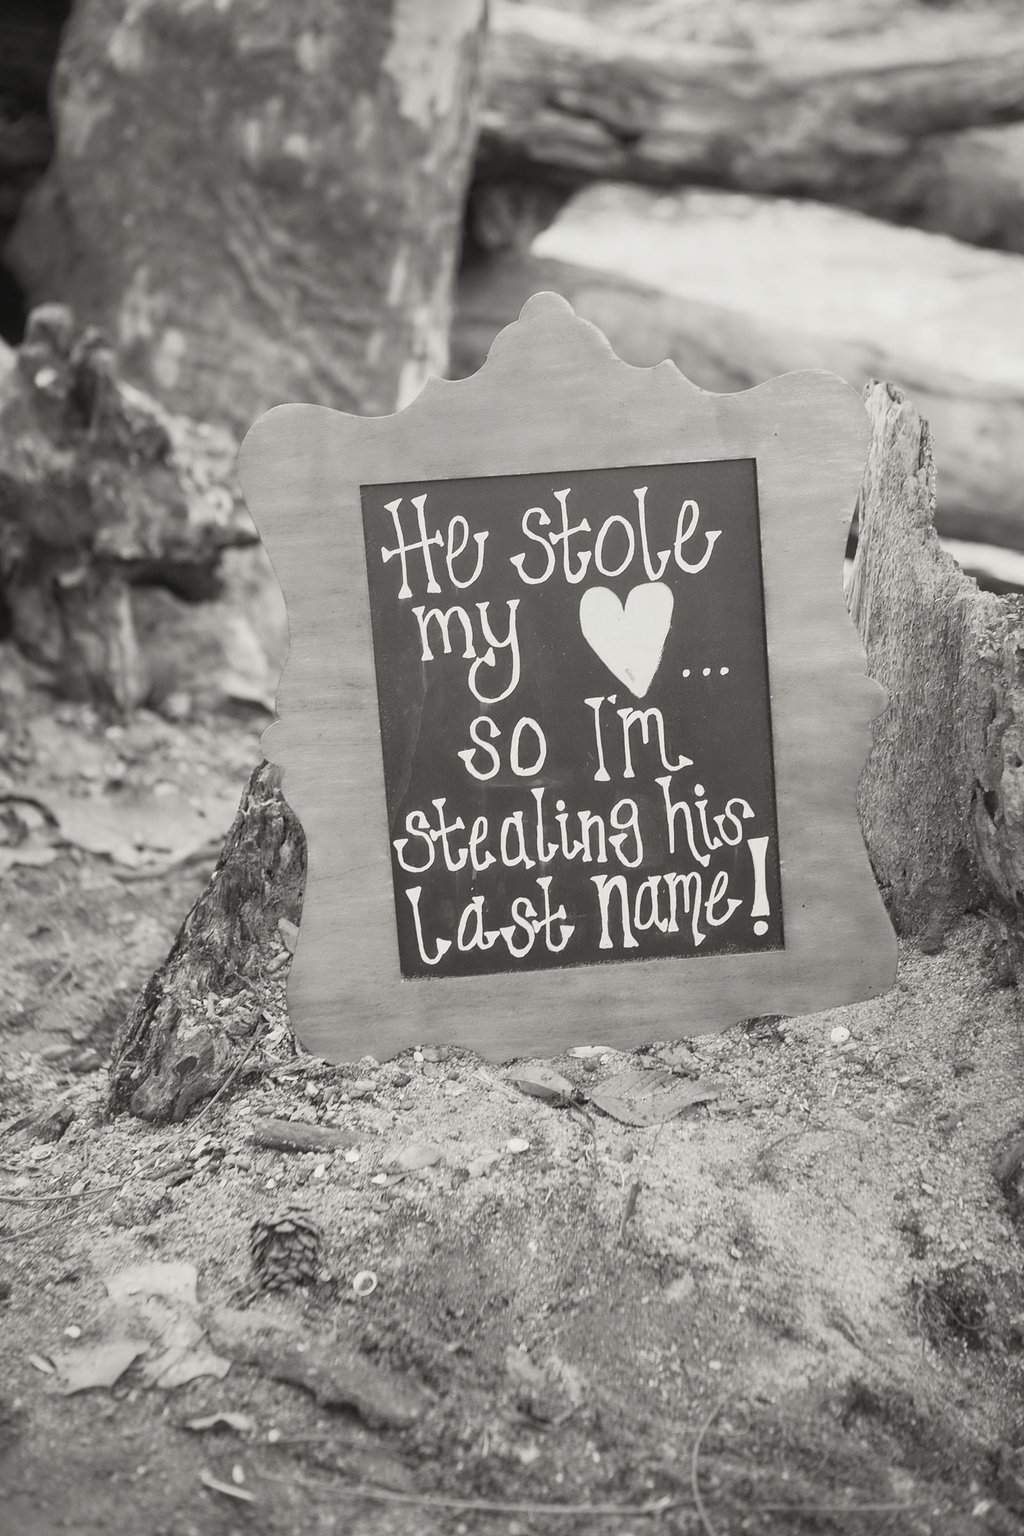 He stole
my ♥...
so I'm
stealing his
Last Name!